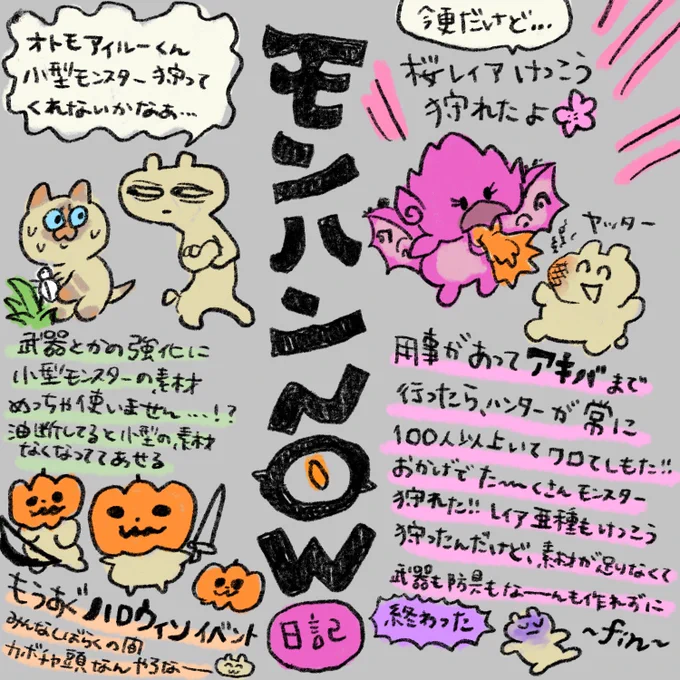 オトモアイルーくん
小型モンスター狩って
くれないかなぁ…
武器とかの強化に
小型モンスターの素材
めっちゃ使いません…!?
油断してると小型の素材
なくなっててあせる
もうすぐハロウィンイベント
みんなしばらくの間
カボチャ頭なんやろなー
モンハンNOW
日記
今更だけど…
桜レイアけっこう
狩れたよ
ヤッター
用事があってアキバまで
行ったら、ハンターが常に
100人以上いてワロてしもた!!
おかげでた〜〜くさんモンスター
狩れた!! レイア亜種もけっこう
狩ったんだけど、素材が足りなくて
武器も防具もな〜んも作れずに
終わった
〜fin〜